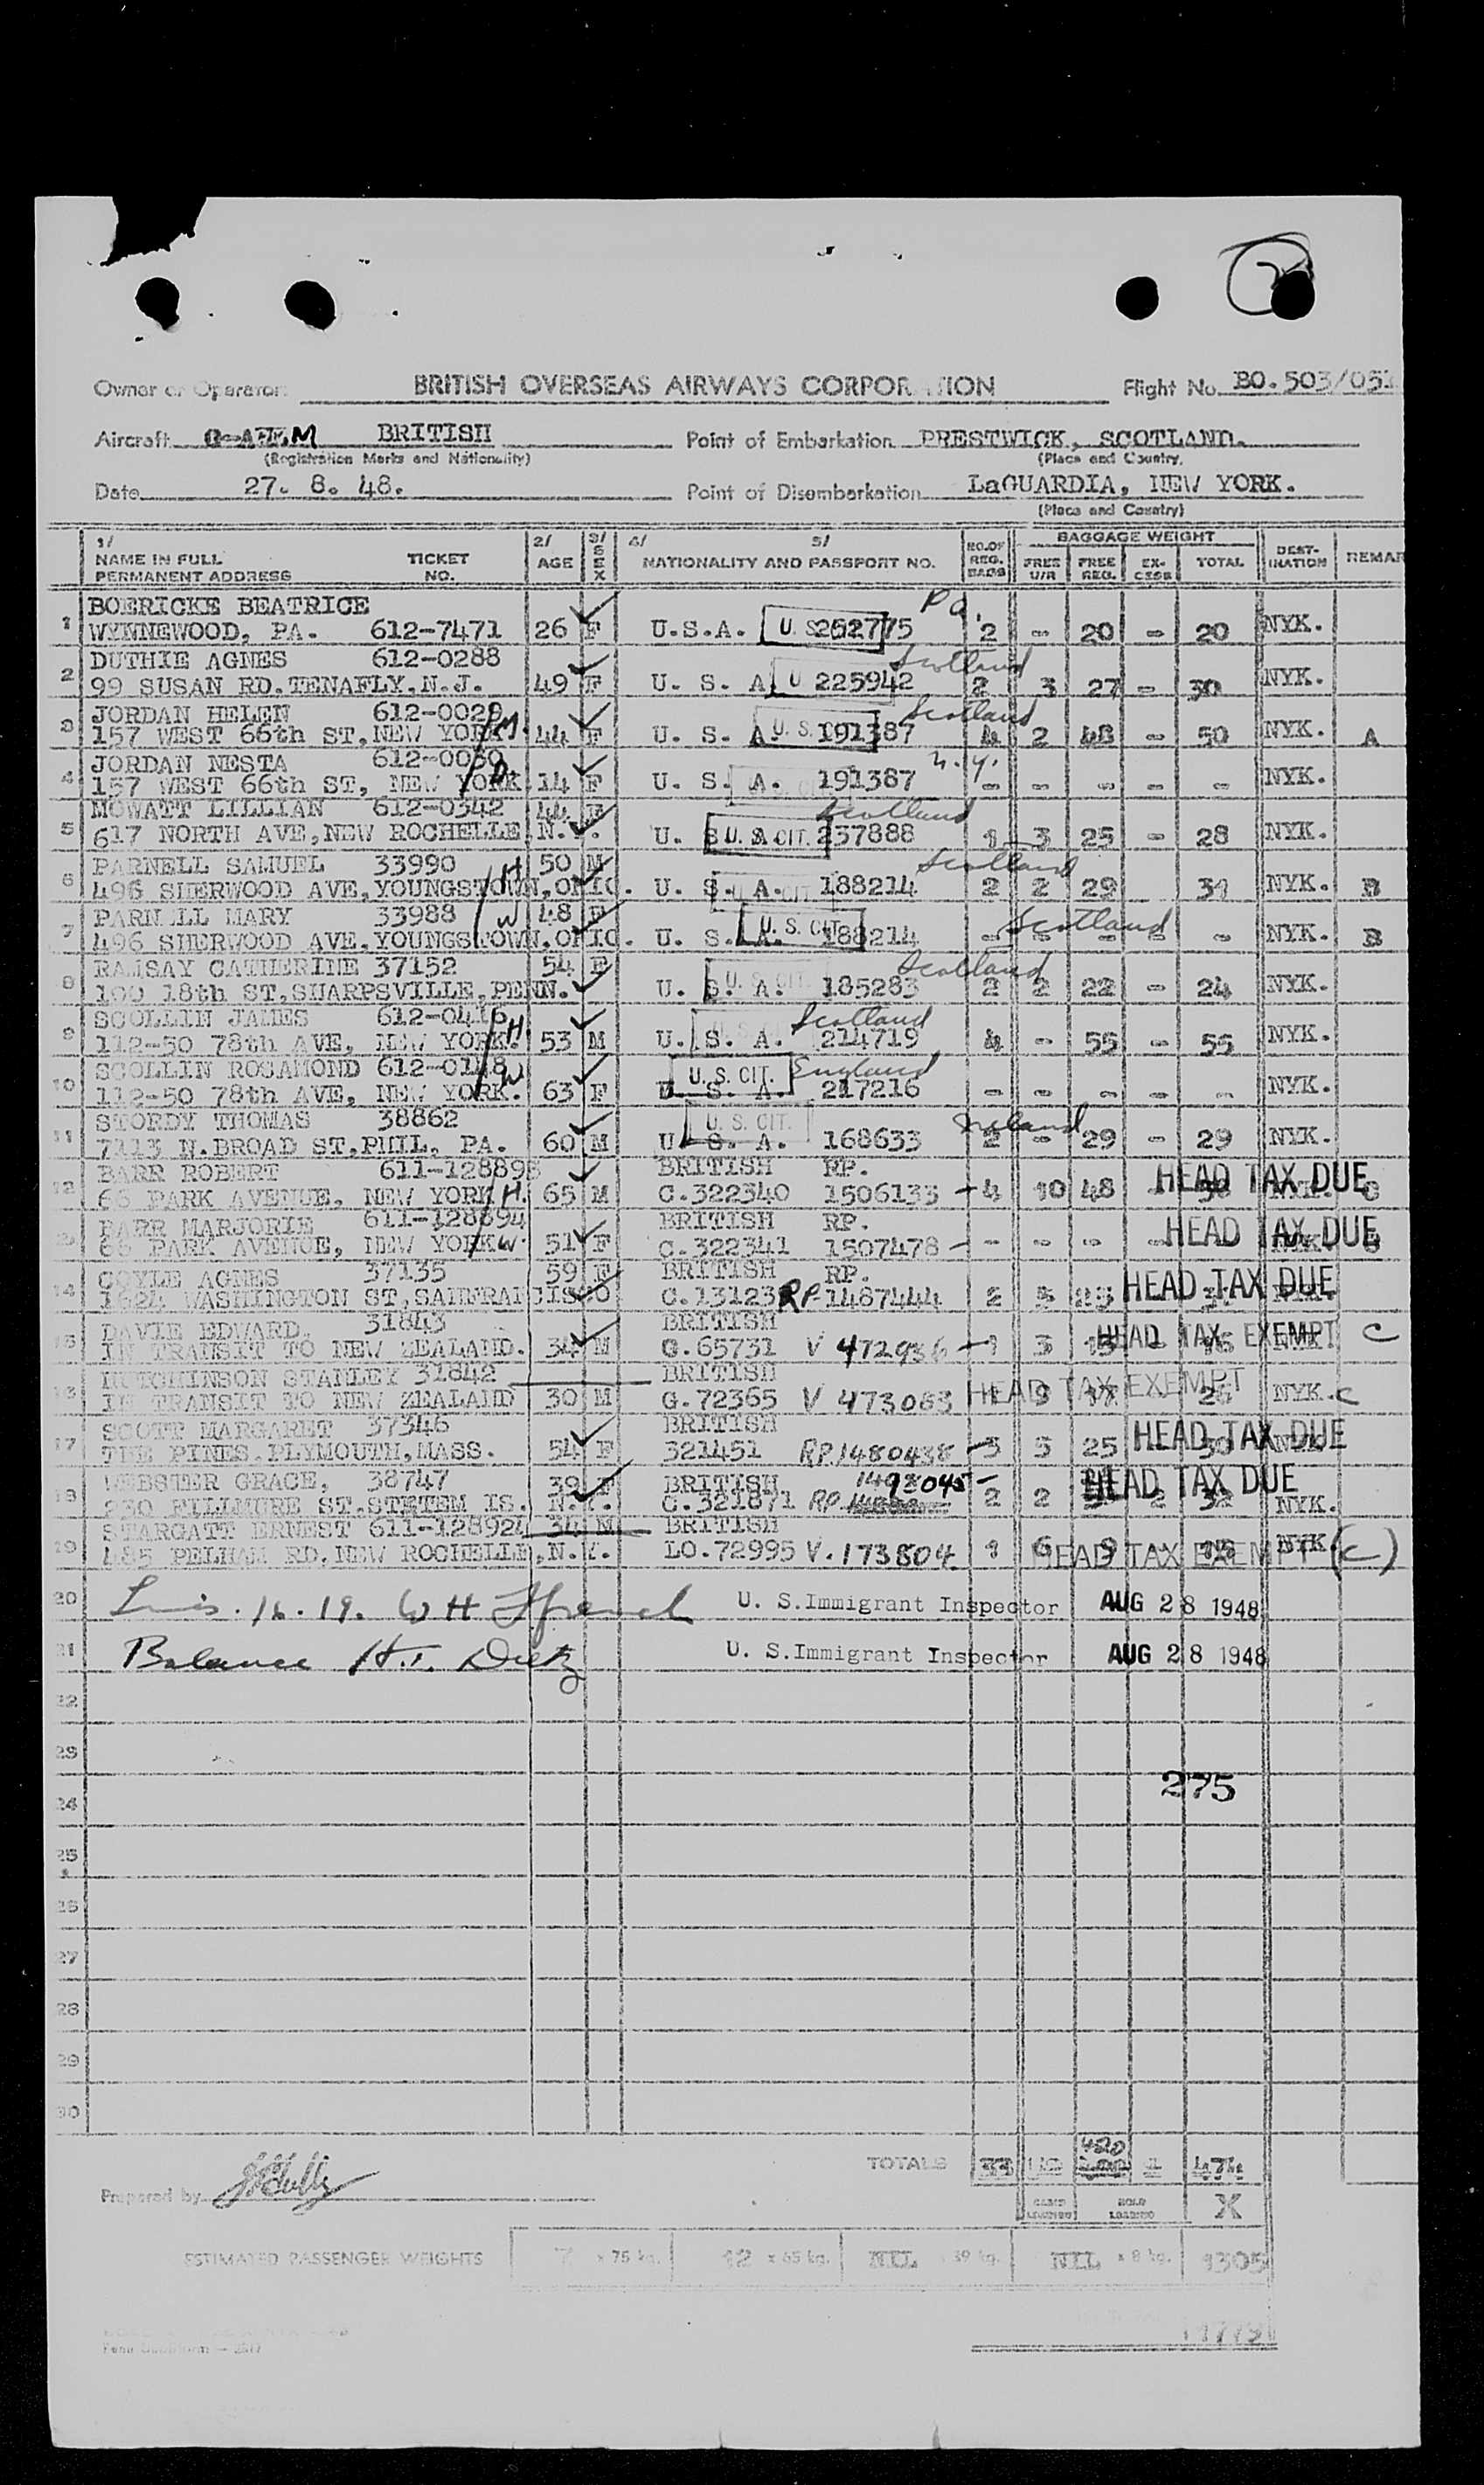 Owner or Operator BRITISH OVERSEAS AIRWAYS CORPORATION Flight No. BO.503/051
Aircraft BRITISH Point of Embarkation PRESTWICK, SCOTLAND.
(Registration Marks and Nationality) (Place and Country)
Date 27. 8. 48. Point of Disembarkation LaGUARDIA, NEW YORK.
(Place and Country)
1/ 2/ 3/ 4/ 5/ NO.OF BAGGAGE WEIGHT
NAME IN FULL TICKET AGE SEX NATIONALITY AND PASSPORT NO. REG. FREE FREE EX- TOTAL DEST- REMAR
PERMANENT ADDRESS NO. BAGS U/R REG. CESS INATION
1 BOERICKE BEATRICE Pa.
WYNNEWOOD, PA. 612-7471 26 F U.S.A. 252775 2 - 20 - 20 NYK.
2 DUTHIE AGNES 612-0288 Scotland
99 SUSAN RD.TENAFLY,N.J. 49 F U. S. A 225942 2 3 27 - 30 NYK.
3 JORDAN HELEN 612-0029 Scotland
157 WEST 66th ST,NEW YORK M. 44 F U. S. A 191387 4 2 48 - 50 NYK. A
4 JORDAN NESTA 612-0030 N.Y.
157 WEST 66th ST, NEW YORK D. 14 F U. S. A. 191387 - - - - - NYK.
5 MOWATT LILLIAN 612-0342 44 F Scotland
617 NORTH AVE,NEW ROCHELLE N.Y. U. S. A. U. S. CIT. 237888 1 3 25 - 28 NYK.
6 PARNELL SAMUEL 33990 H 50 M Scotland
496 SHERWOOD AVE,YOUNGSTOWN,OHIO. U. S. A. 188214 2 2 29 31 NYK. B
7 PARNELL MARY 33988 W 48 F U. S. CIT. Scotland
496 SHERWOOD AVE.YOUNGSTOWN.OHIO. U. S. A. 188214 - - - - - NYK. B
8 RAMSAY CATHERINE 37152 54 F Scotland
100 18th ST,SHARPSVILLE,PENN. U. S. A. 185283 2 2 22 - 24 NYK.
9 SCOLLIN JAMES 612-0416 Scotland
112-50 78th AVE, NEW YORK. H 53 M U. S. A. 214719 4 - 55 - 55 NYK.
10 SCOLLIN ROSAMOND 612-0148 W U. S. CIT. England
112-50 78th AVE, NEW YORK. 63 F U. S. A. 217216 - - - - - NYK.
11 STORDY THOMAS 38862 U. S. CIT.
7113 N.BROAD ST,PHIL, PA. 60 M U. S. A. 168633 2 - 29 - 29 NYK.
12 BARR ROBERT 611-128895 BRITISH RP. HEAD TAX DUE
66 PARK AVENUE, NEW YORK H. 65 M C.322340 1506133 - 4 10 48 - C
13 BARR MARJORIE 611-128894 BRITISH RP. HEAD TAX DUE
66 PARK AVENUE, NEW YORK W. 51 F C.322341 1507478 - - - -
14 COYLE AGNES 37135 59 F BRITISH RP. HEAD TAX DUE
1624 WASHINGTON ST,SANFRANCISCO C.13123 RP 1487444 2 5 25
15 DAVIE EDWARD. 31843 BRITISH HEAD TAX EXEMPT C
IN TRANSIT TO NEW ZEALAND. 34 M C.65731 V 472936 - 1 3
HUTCHINSON STANLEY 31842 BRITISH HEAD TAX EXEMPT
IN TRANSIT TO NEW ZEALAND 30 M G.72365 V 473063 NYK. C
17 SCOTT MARGARET 37346 BRITISH HEAD TAX DUE
THE PINES.PLYMOUTH,MASS. 54 F 321451 RP.1480438 - 3 5 25
18 WEBSTER GRACE, 38747 39 F BRITISH 1493045 - HEAD TAX DUE
230 FILLMORE ST.STETEM IS. N.Y. C.321871 RP. 2 2 2 32 NYK.
19 STARGATT ERNEST 611-128924 34 M BRITISH
485 PELHAM RD,NEW ROCHELLE,N.Y. LO.72995 V.173804 1 6 9 HEAD TAX EXEMPT NYK (C)
20 Lines. 16. 19. W H Ffrench U. S.Immigrant Inspector AUG 28 1948
21 Balance H.T. Dietz U. S.Immigrant Inspector AUG 28 1948
22
23
275
24
25
26
27
28
29
30
420
TOTALS 33 474
Prepared by
X
ESTIMATED PASSENGER WEIGHTS 7 x 75 kg. 12 x 65 kg. NIL x 39 kg. NIL x 8 kg. 1305
1779